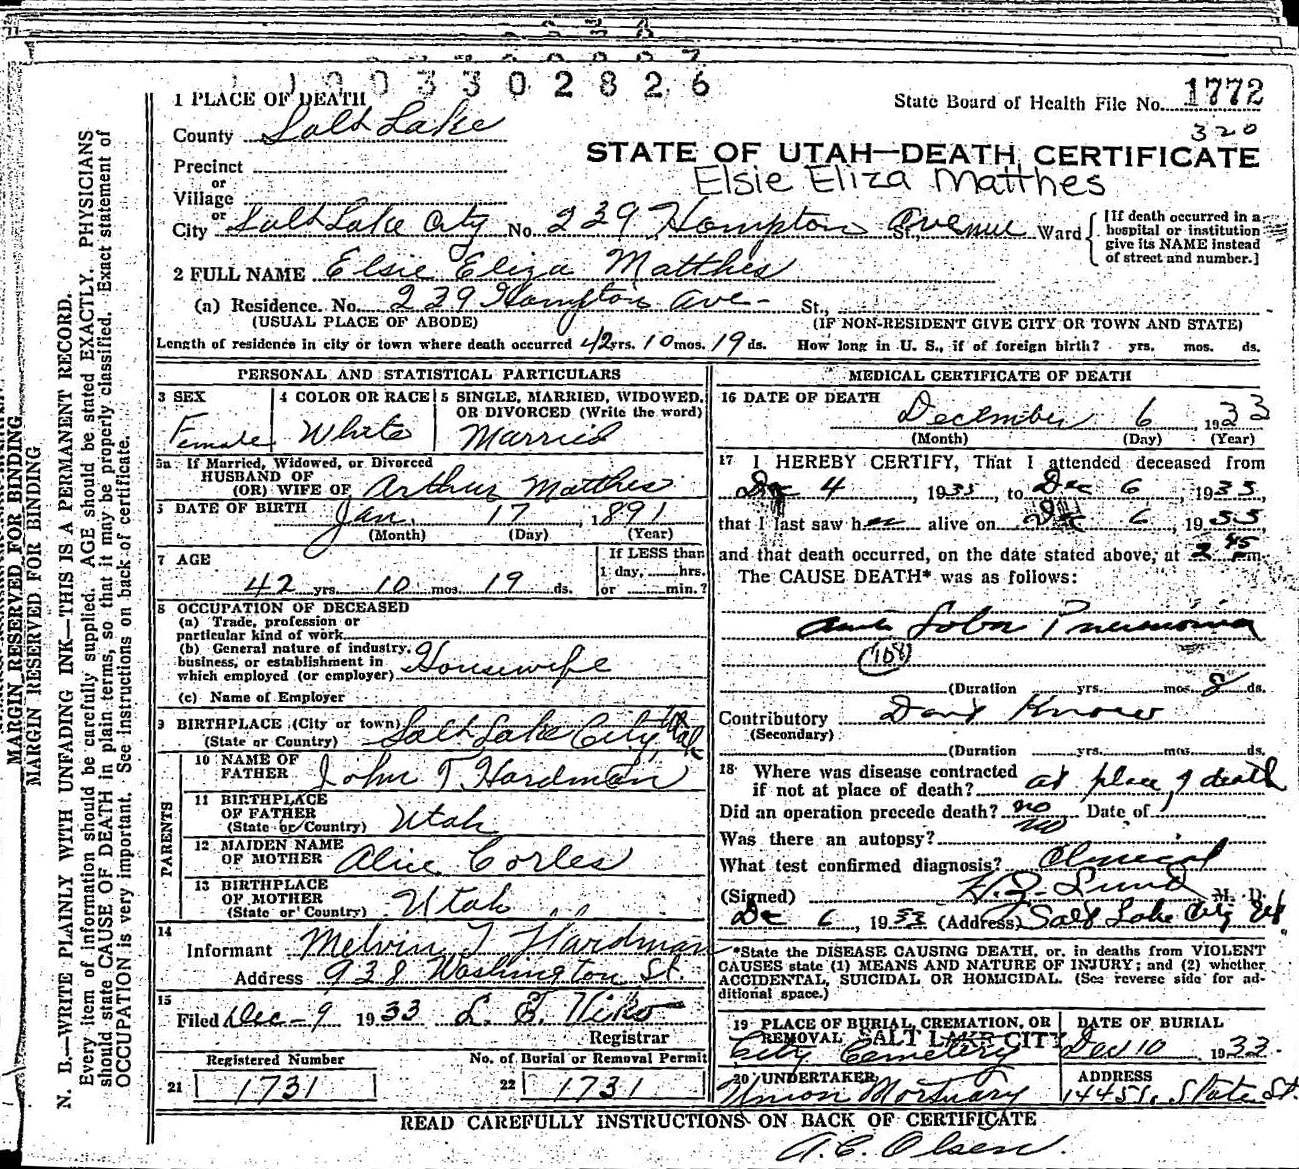 1003302826
1 PLACE OF DEATH
State Board of Health File No. 1772
320
County Salt Lake
STATE OF UTAH—DEATH CERTIFICATE
Precinct
or
Elsie Eliza Matthes
Village
or
City Salt Lake City No. 239 Hampton Avenue St., Ward
[If death occurred in a
hospital or institution
give its NAME instead
of street and number.]
2 FULL NAME Elsie Eliza Matthes
(a) Residence. No. 239 Hampton Ave- St.,
(USUAL PLACE OF ABODE) (IF NON-RESIDENT GIVE CITY OR TOWN AND STATE)
Length of residence in city or town where death occurred 42 yrs. 10 mos. 19 ds. How long in U. S., if of foreign birth? yrs. mos. ds.
PERSONAL AND STATISTICAL PARTICULARS
3 SEX
Female
4 COLOR OR RACE
White
5 SINGLE, MARRIED, WIDOWED,
OR DIVORCED (Write the word)
Married
5a If Married, Widowed, or Divorced
HUSBAND OF
(OR) WIFE OF Arthur Matthes
DATE OF BIRTH Jan. 17, 1891
(Month) (Day) (Year)
7 AGE
42 yrs. 10 mos. 19 ds.
If LESS than
1 day, hrs.
or min.?
8 OCCUPATION OF DECEASED
(a) Trade, profession or
particular kind of work
(b) General nature of industry,
business, or establishment in
which employed (or employer) Housewife
(c) Name of Employer
9 BIRTHPLACE (City or town)
(State or Country) Salt Lake City, Utah
PARENTS
10 NAME OF
FATHER John T. Hardman
11 BIRTHPLACE
OF FATHER
(State or Country) Utah
12 MAIDEN NAME
OF MOTHER Alice Corles
13 BIRTHPLACE
OF MOTHER
(State or Country) Utah
14
Informant Melvin T. Hardman
Address 938 Washington St.
15
Filed Dec-9 1933
Registrar
Registered Number
21 1731
No. of Burial or Removal Permit
22 1731
MEDICAL CERTIFICATE OF DEATH
16 DATE OF DEATH
December 6, 1933
(Month) (Day) (Year)
17 I HEREBY CERTIFY, That I attended deceased from
Dec 4, 1933, to Dec 6, 1933,
that I last saw her alive on Dec 6, 1933,
and that death occurred, on the date stated above, at 2 45 pm.
The CAUSE DEATH* was as follows:
Lobar Pneumonia
108
(Duration yrs. mos. 8 ds.
Contributory Dont Know
(Secondary)
(Duration yrs. mos. ds.
18 Where was disease contracted
if not at place of death? at place of death
Did an operation precede death? no Date of
Was there an autopsy? no
What test confirmed diagnosis? Clinical
(Signed) M. D.
Dec 6, 1933 (Address) Salt Lake City Ut
*State the DISEASE CAUSING DEATH, or, in deaths from VIOLENT
CAUSES state (1) MEANS AND NATURE OF INJURY; and (2) whether
ACCIDENTAL, SUICIDAL OR HOMICIDAL. (See reverse side for ad-
ditional space.)
19 PLACE OF BURIAL, CREMATION, OR
REMOVAL SALT LAKE CITY
City Cemetery
DATE OF BURIAL
Dec 10, 1933
20 UNDERTAKER
Union Mortuary
ADDRESS
1445 S. State St.
READ CAREFULLY INSTRUCTIONS ON BACK OF CERTIFICATE
A. C. Olsen.
MARGIN RESERVED FOR BINDING
MARGIN RESERVED FOR BINDING
N. B.—WRITE PLAINLY WITH UNFADING INK—THIS IS A PERMANENT RECORD.
Every item of information should be carefully supplied. AGE should be stated EXACTLY. PHYSICIANS
should state CAUSE OF DEATH in plain terms, so that it may be properly classified. Exact statement of
OCCUPATION is very important. See instructions on back of certificate.